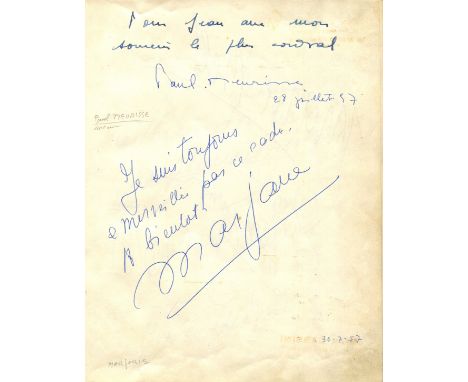 Pour Jean avec mon
souvenir le plus cordial
Paul Meurisse
28 juillet 57
Paul MEURISSE
Je suis toujours
émerveillée par ce cadre.
à bientôt
Marjane
30-7-57
MARJANE